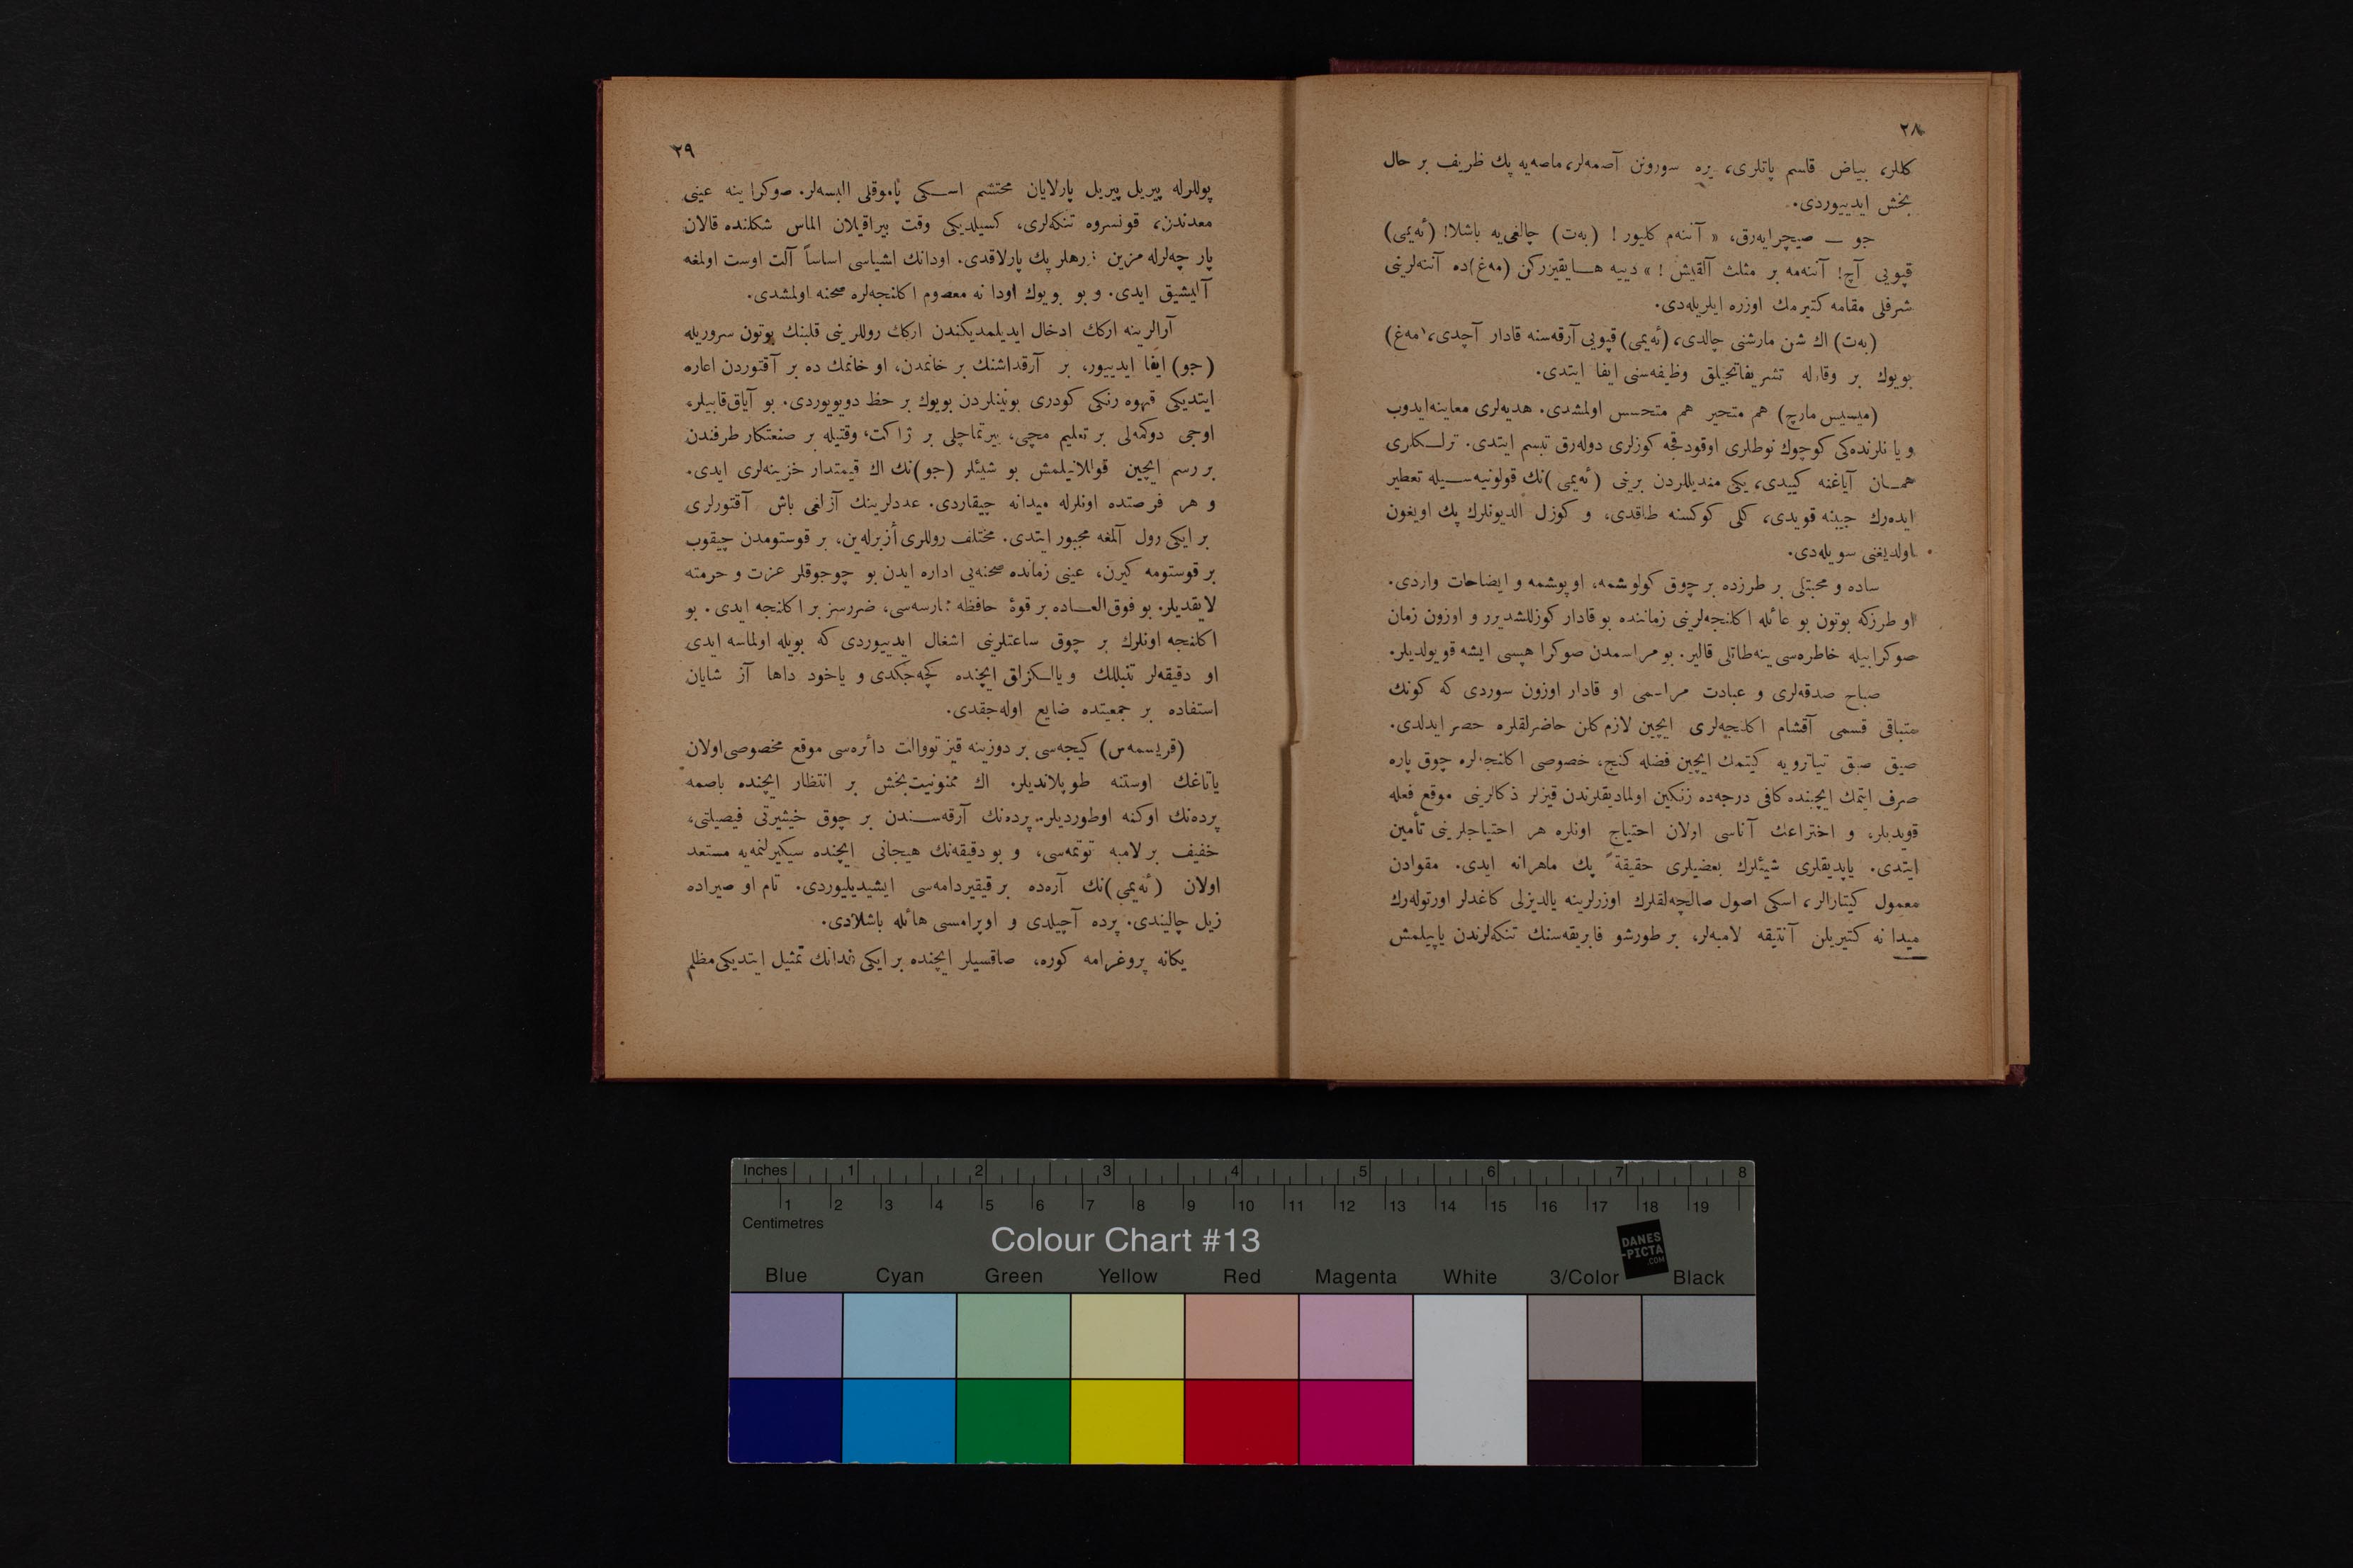 ٢٨
كللر، بياض قاسم پاتلرى، يره سورونن آصمه‌لر، ماصه‌يه پك ظريف بر حال
بخش ايدييوردى.
جو — صيچرايه‌رق، « آننه‌م كليور ! (به‌ت) چالغى‌يه باشلا! (ئه‌يمى)
قپويى آچ! آننه‌مه بر مثلث آلقيش ! » دييه هــايقيزركن (مه‌غ)ده آننه‌لرينى
شرفلى مقامه كتيرمك اوزره ايلريله‌دى.
(به‌ت) اك شن مارشنى چالدى، (ئه‌يمى) قپويى آرقه‌سنه قادار آچدى، (مه‌غ)
بويوك بر وقارله تشريفاتجيلق وظيفه‌سنى ايفا ايتدى.
(ميسيس مارچ) هم متحير هم متحسس اولمشدى. هديه‌لرى معاينه ايدوب
و يا نلرنده‌كى كوچوك نوطلرى اوقودقجه كوزلرى دوله‌رق تبسم ايتدى. ترلــكلرى
همــان آياغنه كييدى، يكى منديللردن برينى (ئه‌يمى)نك قولونيه‌ســيله تعطير
ايده‌رك جيبنه قويدى، كلى كوكسنه طاقدى، و كوزل الديونلرك پك اويغون
اولديغنى سويله‌دى.
ساده و محبتلى بر طرزده بر چوق كولوشمه، اوپوشمه و ايضاحات واردى.
او طرزكه بوتون بو عائله اكلنجه‌لرينى زماننده بو قادار كوزللشديرر و اوزون زمان
صوكرا بيله خاطره‌سى ينه طاتلى قالير. بو مراسمدن صوكرا هپسى ايشه قويولديلر.
صباح صدقه‌لرى و عبادت مراسمى او قادار اوزون سوردى كه كونك
متباقى قسمى آقشام اكلنجه‌لرى ايچين لازم كلن حاضرلقلره حصر ايدلدى.
صيق صيق تياترويه كيتمك ايچين فضله كنج، خصوصى اكلنجه‌لره چوق پاره
صرف ايتمك ايچينده كافى درجه‌ده زنكين اولماديقلرندن قيزلر ذكالرينى موقع فعله
قويديلر، و اختراعك آناسى اولان احتياج اونلره هر احتياجلرينى تأمين
ايتدى. ياپديقلرى شيئلرك بعضيلرى حقيقةً پك ماهرانه ايدى. مقوادن
معمول كيتارالر، اسكى اصول صالچه‌لقلرك اوزرلرينه يالديزلى كاغدلر اورتوله‌رك
ميدا نه كتيريلن آنتيقه لامبه‌لر، بر طورشو فابريقه‌سنك تنكه‌لرندن ياپيلمش
٢٩
پوللرله پيريل پيريل پارلايان محتشم اســكى پاموقلى البسه‌لر. صوكرا ينه عينى
معدندن، قونسروه تنكه‌لرى، كسيلديكى وقت بيراقيلان الماس شكلنده قالان
پارچه‌لرله مزين زرهلر پك پارلاقدى. اودانك اشياسى اساساً آلت اوست اولمغه
آليشيق ايدى. و بو بويوك اودا نه معصوم اكلنجه‌لره صحنه اولمشدى.
آرالرينه اركك ادخال ايديلمديكندن اركك روللرينى قلبنك بوتون سروريله
(جو) ايفا ايدييور، بر آرقداشنك بر خانمدن، او خانمك ده بر آقتوردن اعاره
ايتديكى قهوه رنكى كودرى بوتينلردن بويوك بر حظ دويويوردى. بو آياق‌قابيلر،
اوجى دوكمه‌لى بر تعليم مچى، ييرتماچلى بر ژاكت، وقتيله بر صنعتكار طرفندن
بر رسم ايچين قوللانيلمش بو شيئلر (جو)نك اك قيمتدار خزينه‌لرى ايدى.
و هر فرصتده اونلرله ميدانه چيقاردى. عددلرينك آزلغى باش آقتورلرى
بر ايكى رول آلمغه مجبور ايتدى. مختلف روللرى أزبرله‌ين، بر قوستومدن چيقوب
بر قوستومه كيرن، عينى زمانده صحنه‌يى اداره ايدن بو چوجوقلر عزت و حرمته
لايقديلر. بو فوق‌العــاده بر قوۀ حافظه ممارسه‌سى، ضررسز بر اكلنجه ايدى. بو
اكلنجه اونلرك بر چوق ساعتلرينى اشغال ايدييوردى كه بويله اولماسه ايدى
او دقيقه‌لر تنبللك ويا يالــكزلق ايچنده كچه‌جكدى و ياخود داها آز شايان
استفاده بر جمعيتده ضايع اوله‌جقدى.
(قريسمه‌س) كيجه‌سى بر دوزينه قيز تووالت دائره‌سى موقع مخصوصى اولان
ياتاغك اوستنه طوپلانديلر. اك ممنونيت‌بخش بر انتظار ايچنده باصمه
پرده‌نك اوكنه اوطورديلر.. پرده‌نك آرقه‌ســندن بر چوق خيشيرتى فيصيلتى،
خفيف بر لامبه توتمه‌سى، و بو دقيقه‌نك هيجانى ايچنده سيكيرلنمه‌يه مستعد
اولان (ئه‌يمى)نك آره‌ده بر قيقيردامه‌سى ايشيديليوردى. تام او صيراده
زيل چاليندى. پرده آچيلدى و اوپرامسى هائله باشلادى.
يكانه پروغرامه كوره، صاقسيلر ايچنده بر ايكى فدانك تمثيل ايتديكى مظلم
Inches 1 2 3 4 5 6 7 8
1 2 3 4 5 6 7 8 9 10 11 12 13 14 15 16 17 18 19
Centimetres
Colour Chart #13
DANES
-PICTA
.COM
Blue Cyan Green Yellow Red Magenta White 3/Color Black